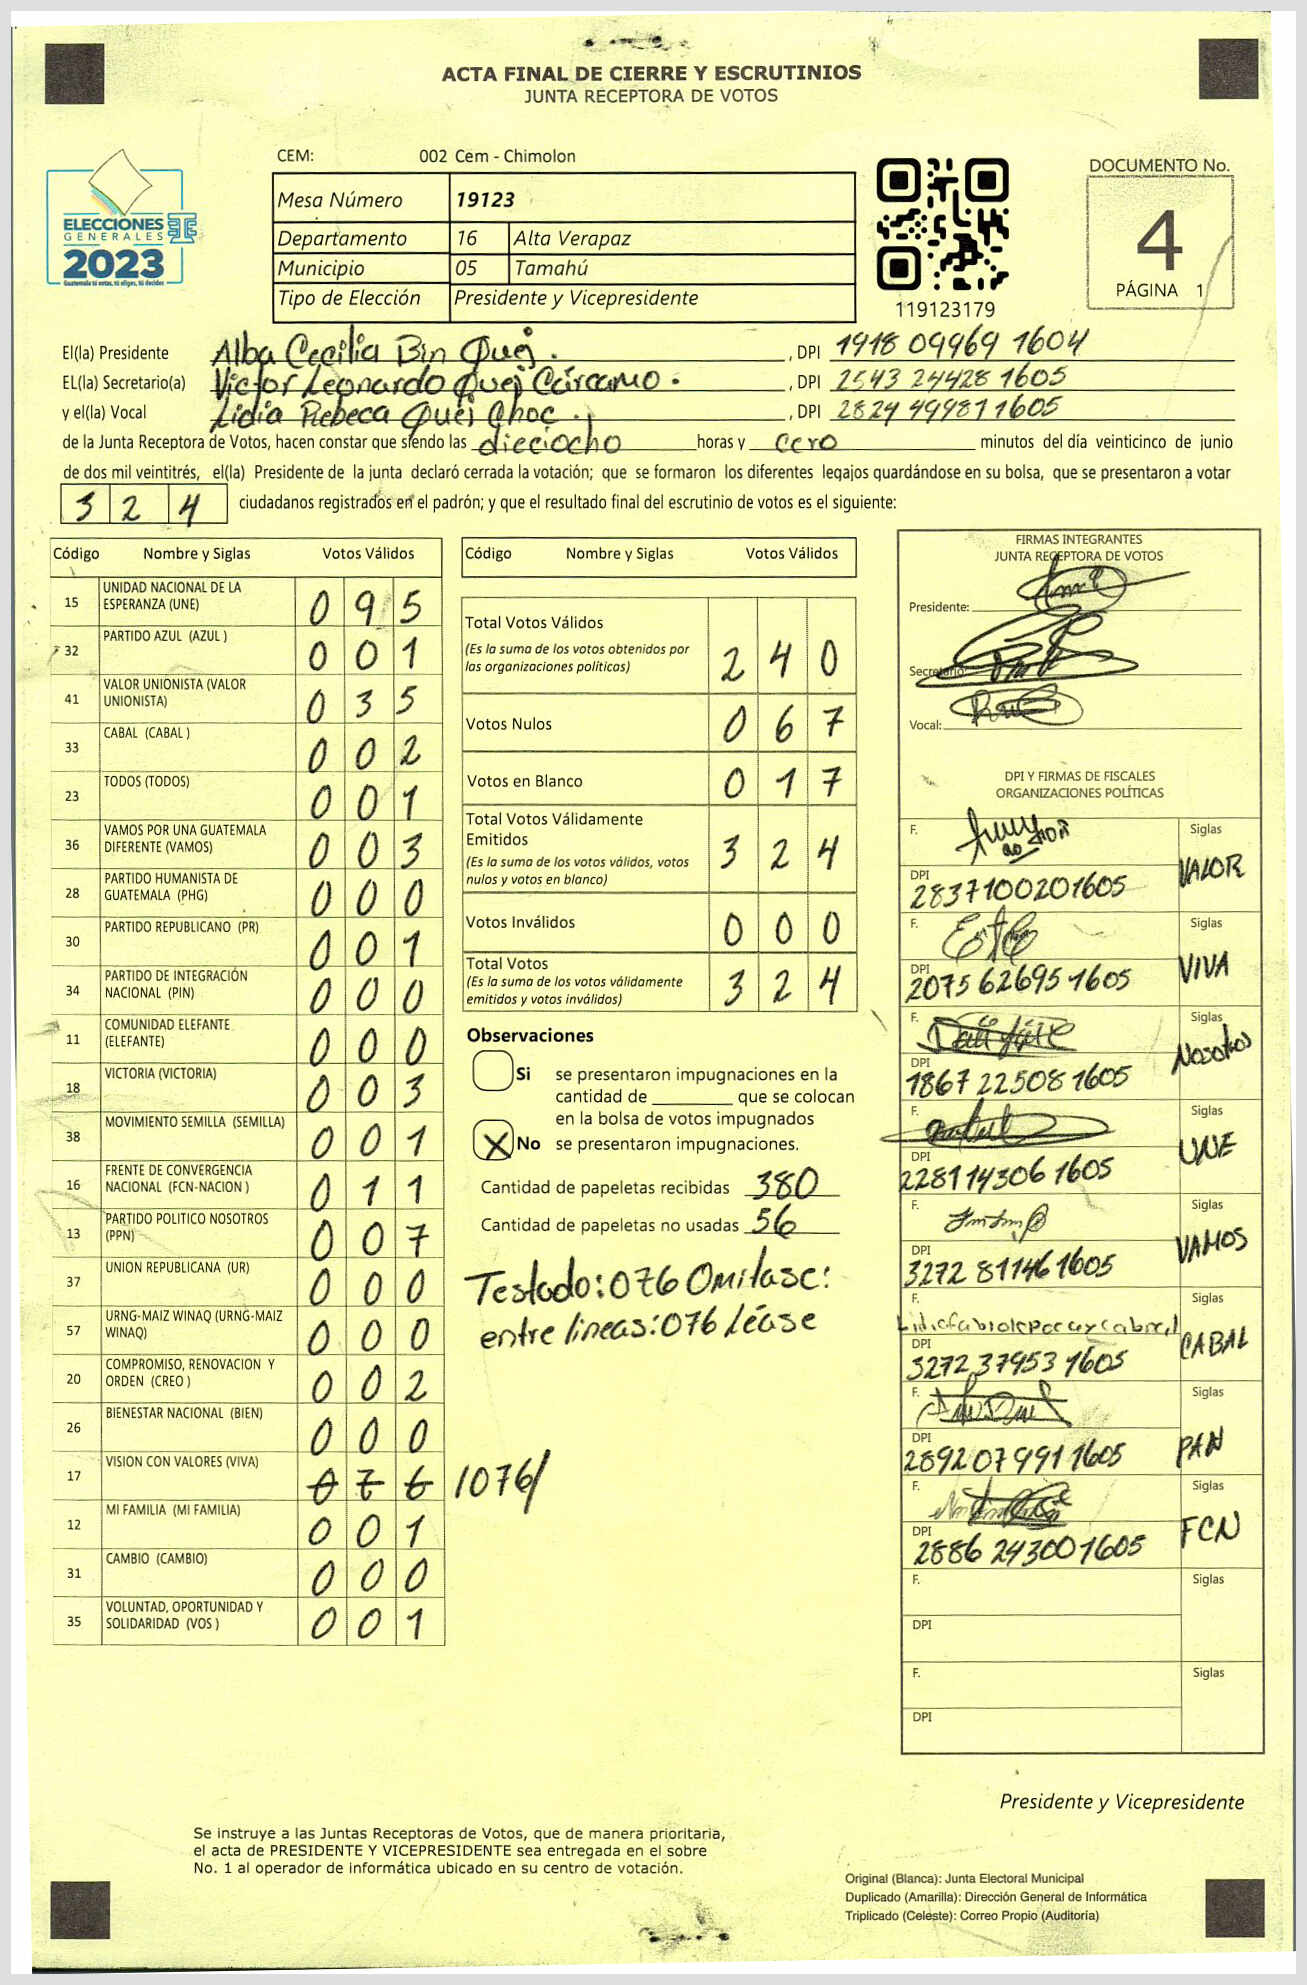 ACTA FINAL DE CIERRE Y ESCRUTINIOS
JUNTA RECEPTORA DE VOTOS
CEM: 002 Cem - Chimolon
DOCUMENTO No.
4
PÁGINA 1
ELECCIONES
GENERALES
2023
Guatemala tú votas, tú eliges, tú decides
Mesa Número 19123
Departamento 16 Alta Verapaz
Municipio 05 Tamahú
Tipo de Elección Presidente y Vicepresidente
119123179
El(la) Presidente Alba Cecilia Bin Quej. , DPI 1918 09969 1604
EL(la) Secretario(a) Victor Leonardo Quej Cárcamo. , DPI 2543 24428 1605
y el(la) Vocal Lidia Rebeca Quej Choc. , DPI 2824 49981 1605
de la Junta Receptora de Votos, hacen constar que siendo las dieciocho horas y cero minutos del día veinticinco de junio
de dos mil veintitrés, el(la) Presidente de la junta declaró cerrada la votación; que se formaron los diferentes legajos guardándose en su bolsa, que se presentaron a votar
3 2 4 ciudadanos registrados en el padrón; y que el resultado final del escrutinio de votos es el siguiente:
Código Nombre y Siglas Votos Válidos
15 UNIDAD NACIONAL DE LA ESPERANZA (UNE) 0 9 5
32 PARTIDO AZUL (AZUL ) 0 0 1
41 VALOR UNIONISTA (VALOR UNIONISTA) 0 3 5
33 CABAL (CABAL ) 0 0 2
23 TODOS (TODOS) 0 0 1
36 VAMOS POR UNA GUATEMALA DIFERENTE (VAMOS) 0 0 3
28 PARTIDO HUMANISTA DE GUATEMALA (PHG) 0 0 0
30 PARTIDO REPUBLICANO (PR) 0 0 1
34 PARTIDO DE INTEGRACIÓN NACIONAL (PIN) 0 0 0
11 COMUNIDAD ELEFANTE (ELEFANTE) 0 0 0
18 VICTORIA (VICTORIA) 0 0 3
38 MOVIMIENTO SEMILLA (SEMILLA) 0 0 1
16 FRENTE DE CONVERGENCIA NACIONAL (FCN-NACION ) 0 1 1
13 PARTIDO POLITICO NOSOTROS (PPN) 0 0 7
37 UNION REPUBLICANA (UR) 0 0 0
57 URNG-MAIZ WINAQ (URNG-MAIZ WINAQ) 0 0 0
20 COMPROMISO, RENOVACION Y ORDEN (CREO ) 0 0 2
26 BIENESTAR NACIONAL (BIEN) 0 0 0
17 VISION CON VALORES (VIVA) 0 7 6 /076/
12 MI FAMILIA (MI FAMILIA) 0 0 1
31 CAMBIO (CAMBIO) 0 0 0
35 VOLUNTAD, OPORTUNIDAD Y SOLIDARIDAD (VOS ) 0 0 1
Código Nombre y Siglas Votos Válidos
Total Votos Válidos 2 4 0
(Es la suma de los votos obtenidos por
las organizaciones políticas)
Votos Nulos 0 6 7
Votos en Blanco 0 1 7
Total Votos Válidamente
Emitidos 3 2 4
(Es la suma de los votos válidos, votos
nulos y votos en blanco)
Votos Inválidos 0 0 0
Total Votos 3 2 4
(Es la suma de los votos válidamente
emitidos y votos inválidos)
Observaciones
Si se presentaron impugnaciones en la
cantidad de ________ que se colocan
en la bolsa de votos impugnados
X No se presentaron impugnaciones.
Cantidad de papeletas recibidas 380
Cantidad de papeletas no usadas 56
Testado: 076 Omitase:
entre lineas: 076 Léase
FIRMAS INTEGRANTES
JUNTA RECEPTORA DE VOTOS
Presidente:
Secretario:
Vocal:
DPI Y FIRMAS DE FISCALES
ORGANIZACIONES POLÍTICAS
F. Siglas
DPI 2837100201605 VALOR
F. Siglas
DPI 2075 62695 1605 VIVA
F. Siglas
DPI 1867 22508 1605 Nosotros
F. Siglas
DPI 2281 14306 1605 UNE
F. Siglas
DPI 3272 81146 1605 VAMOS
F. Siglas
DPI 3272 37953 1605 CABAL
F. Siglas
DPI 2892 07991 1605 PAN
F. Siglas
DPI 2886 24300 1605 FCN
F. Siglas
DPI
F. Siglas
DPI
Presidente y Vicepresidente
Se instruye a las Juntas Receptoras de Votos, que de manera prioritaria,
el acta de PRESIDENTE Y VICEPRESIDENTE sea entregada en el sobre
No. 1 al operador de informática ubicado en su centro de votación.
Original (Blanca): Junta Electoral Municipal
Duplicado (Amarilla): Dirección General de Informática
Triplicado (Celeste): Correo Propio (Auditoría)